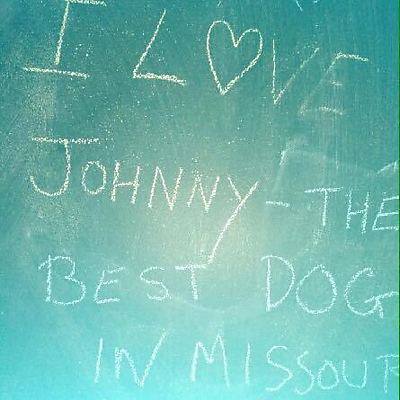 I L♡VE
JOHNNY - THE
BEST DOG
IN MISSOUR